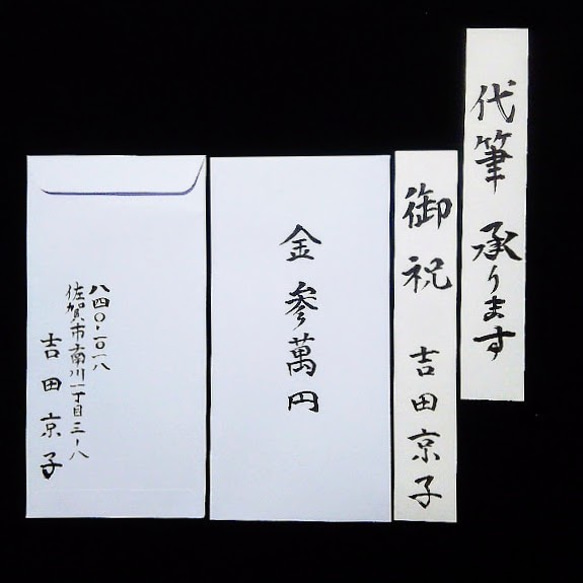 代筆 承ります
御祝 吉田京子
金 参萬円
八四〇-二〇一八
佐賀市南川一丁目三-八
吉田京子